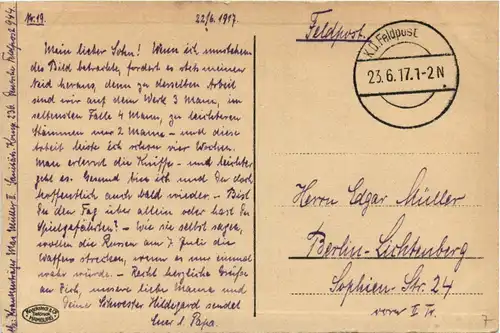 Nr. 19.
22/6. 1917.
Mein lieber Sohn! Wenn ich umstehen-
des Bild betrachte, fordert es stets meinen
Neid heraus, denn zu derselben Arbeit
sind wir auf dem Werk 3 Mann, im
seltensten Falle 4 Mann, zu leichteren
Stämmen nur 2 Mann - und diese
Arbeit leiste ich schon vier Wochen.
Man erlernt die Kniffe - und leichter
geht es. Gesund bin ich und Du doch
hoffentlich auch bald wieder. - Bist
Du den Tag über allein oder hast Du
Spielgefährten? - Wie sie selbst sagen,
wollen die Russen am 7 Juli die
Waffen strecken, wenn es nur einmal
wahr würde. - Recht herzliche Grüße
an Dich, unsere liebe Mama und
Deine Schwester Hildegard sendet
Euer l. Papa.
Krankenträger Max Müller II. Sanitäts Komp. 236. Deutsche Feldpost 944.
Feldpost.
K.D. Feldpost
23.6.17.1-2N
Herrn Edgar Müller
Berlin-Lichtenberg
Sophien-Str. 24
vorn II Tr.
HAMBURG
7